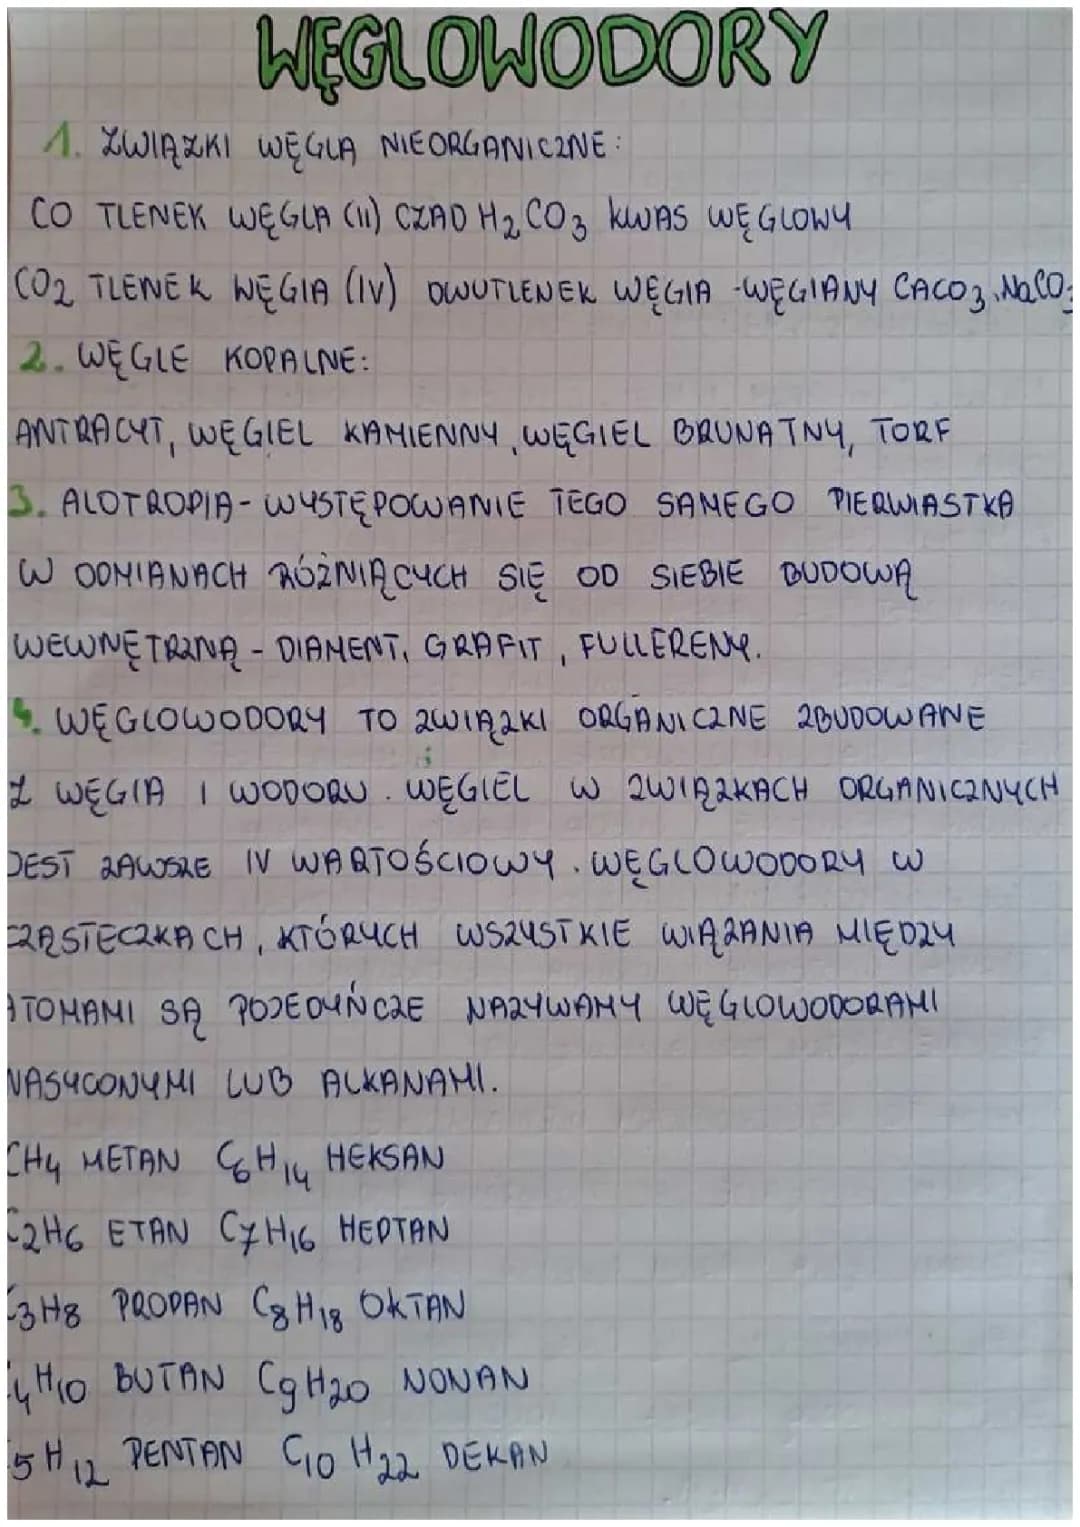 WĘGLOWODORY
1. ZWIĄZKI WĘGLA NIEORGANICZNE:
CO TLENEK WĘGLA (II) CZAD H₂CO₃ KWAS WĘGLOWY
CO₂ TLENEK WĘGLA (IV) DWUTLENEK WĘGLA - WĘGLANY CACO₃, NaCO₃
2. WĘGLE KOPALNE:
ANTRACYT, WĘGIEL KAMIENNY, WĘGIEL BRUNATNY, TORF
3. ALOTROPIA - WYSTĘPOWANIE TEGO SAMEGO PIERWIASTKA
W ODMIANACH RÓŻNIĄCYCH SIĘ OD SIEBIE BUDOWĄ
WEWNĘTRZNĄ - DIAMENT, GRAFIT, FULLERENY.
4. WĘGLOWODORY TO ZWIĄZKI ORGANICZNE ZBUDOWANE
Z WĘGLA I WODORU. WĘGIEL W ZWIĄZKACH ORGANICZNYCH
JEST ZAWSZE IV WARTOŚCIOWY. WĘGLOWODORY W
CZĄSTECZKACH, KTÓRYCH WSZYSTKIE WIĄZANIA MIĘDZY
ATOMAMI SĄ POJEDYŃCZE NAZYWAMY WĘGLOWODORAMI
NASYCONYMI LUB ALKANAMI.
CH₄ METAN C₆H₁₄ HEKSAN
C₂H₆ ETAN C₇H₁₆ HEPTAN
C₃H₈ PROPAN C₈H₁₈ OKTAN
C₄H₁₀ BUTAN C₉H₂₀ NONAN
C₅H₁₂ PENTAN C₁₀H₂₂ DEKAN